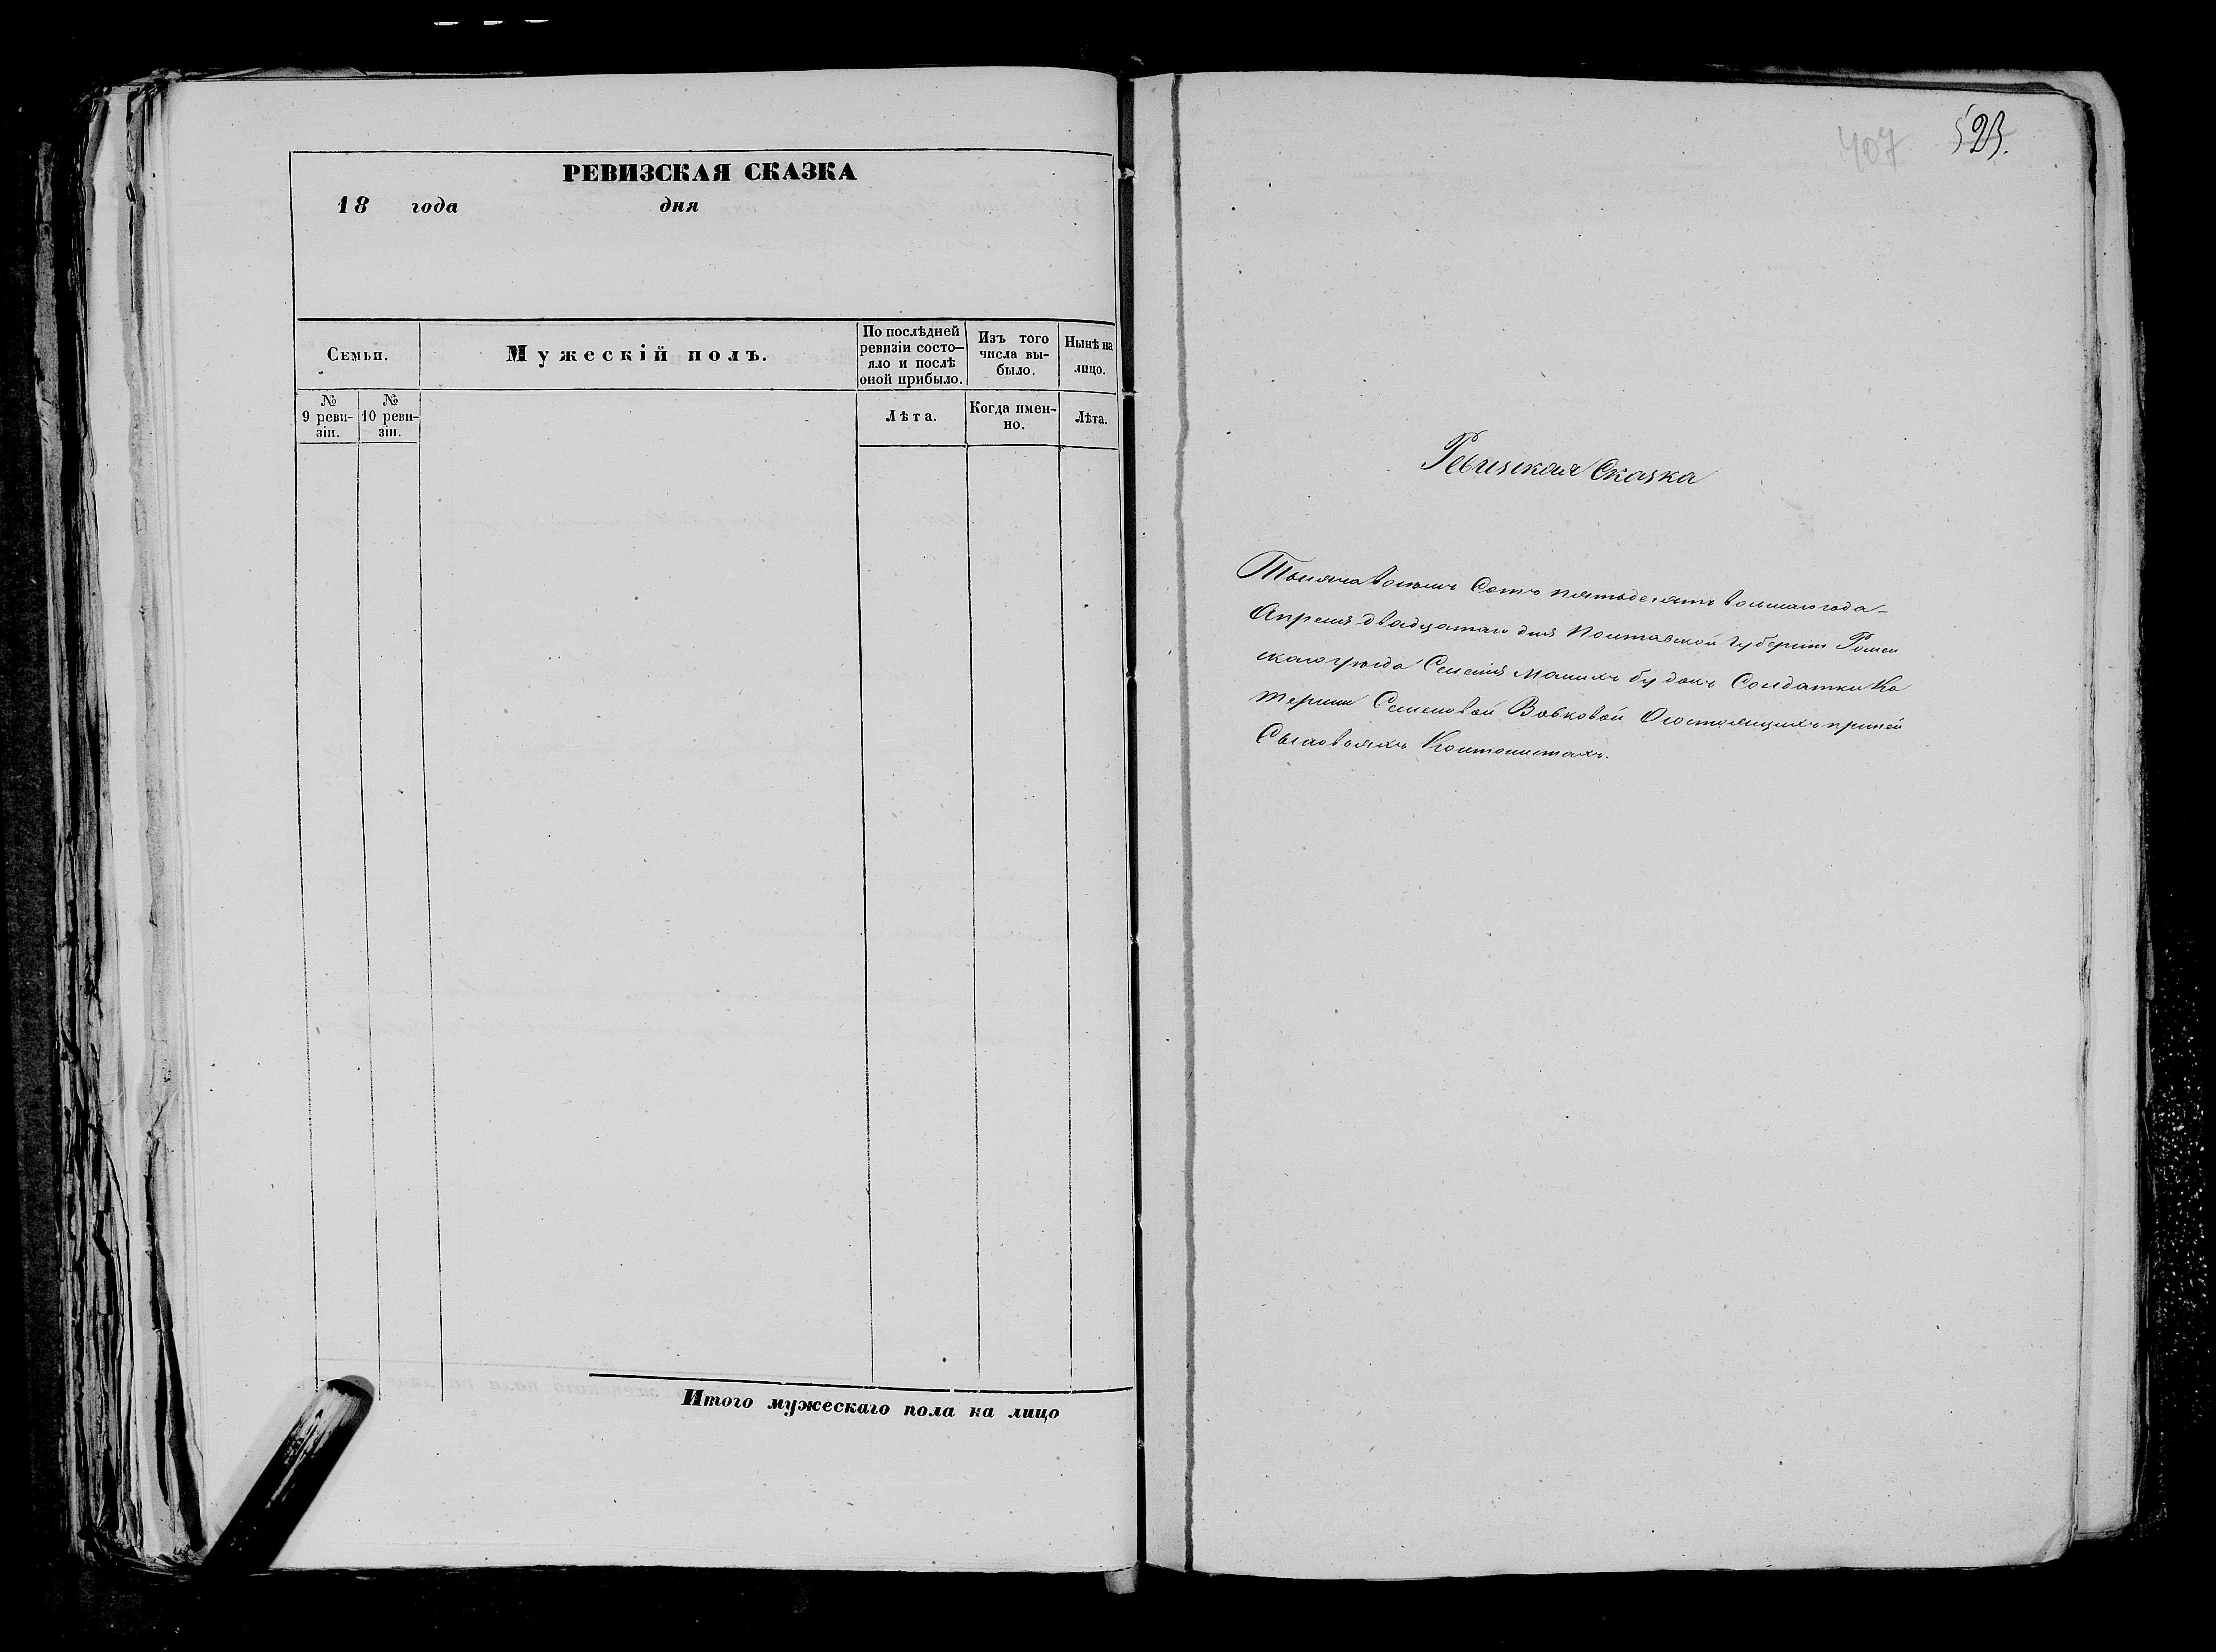 РЕВИЗСКАЯ СКАЗКА
18 года дня
Семьи.
Мужескій полъ.
По послѣдней ревизіи состо-
яло и послѣ оной прибыло.
Изъ того числа вы-
было.
Нынѣ на лицо.
№ 9 реви-
зіи.
№ 10 реви-
зіи.
Лѣта.
Когда имен-
но.
Лѣта.
Итого мужескаго пола на лицо
407
523.
Ревизская Сказка
Тысяча восемь Сотъ пятьдесятъ восмаго года
Апреля двадцатаго дня Полтавской Губерніи Ромен
скаго уезда Селенія Малихъ будокъ Солдатки Ка
терини Семеновой Вовковой О состоящихъ при ней
Сыновьяхъ Кантонистахъ.